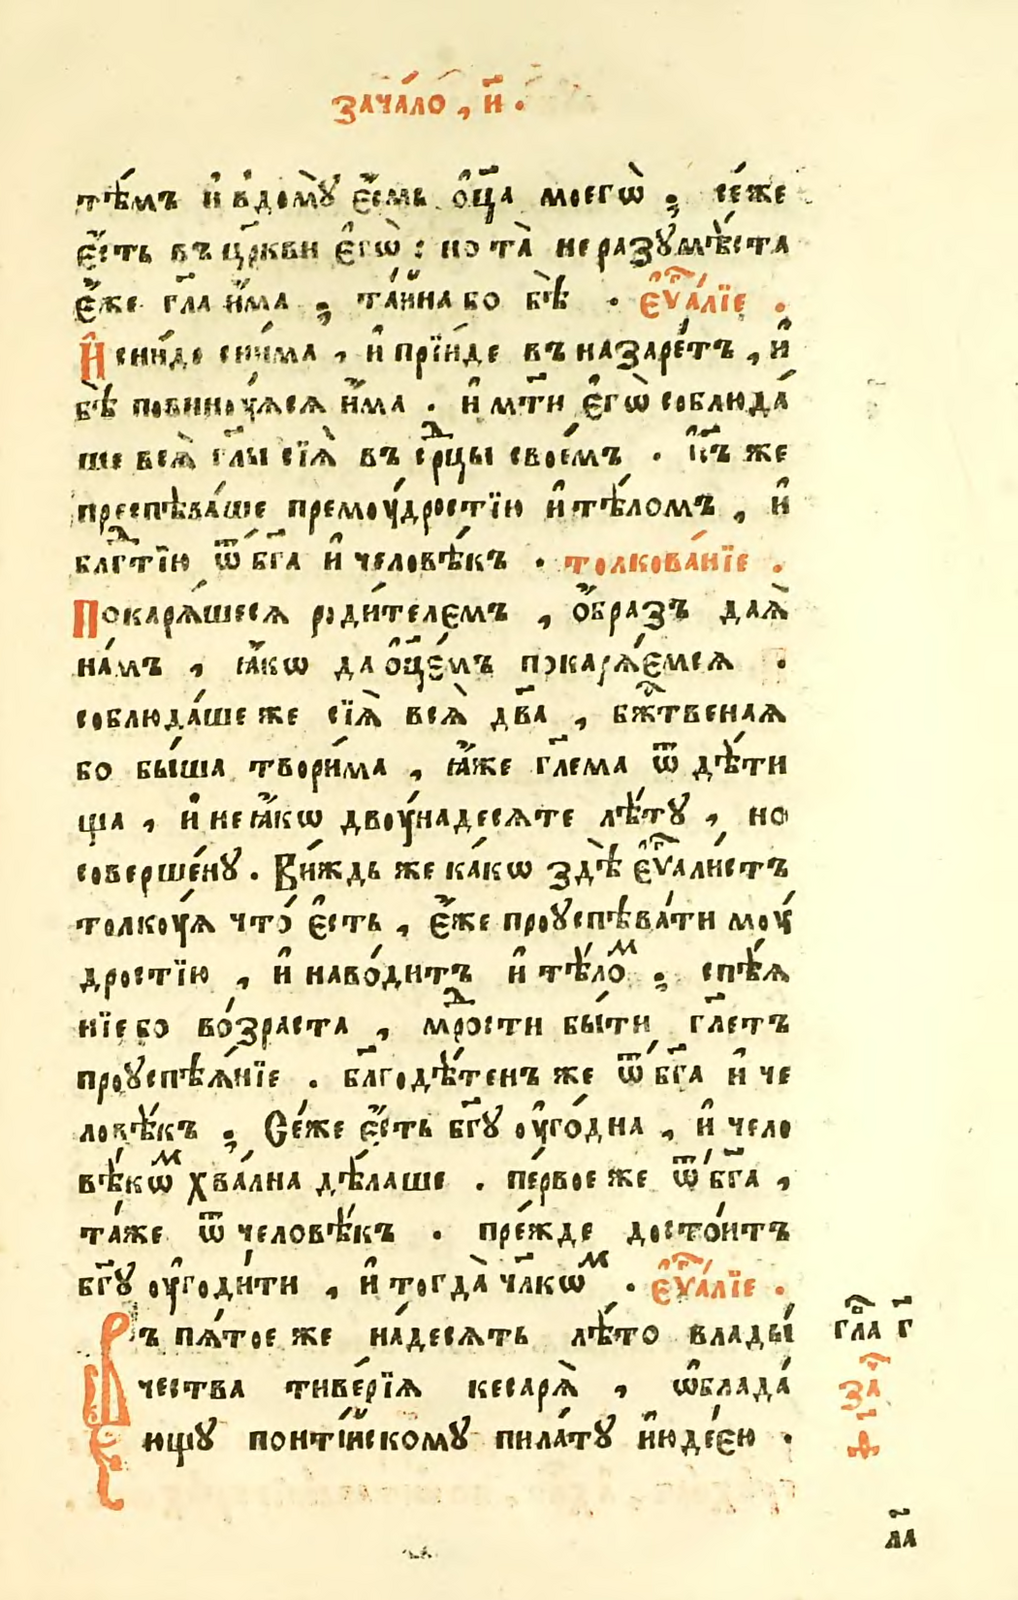 зача́ло , и҃ .
тѣ́мъ и҆ в̾ домꙋ̀ є҆́смь ѻ҆ц҃а моегѡ̀ , се́же
є҆́сть въ цр҃кви є҆гѡ̀ : но та̀ не разꙋмѣ́ста
є҆́же гл҃а и҆́ма , та́йна бо бѣ̀ . є҆ѵⷢ҇а́лїе .
И҆ сни́де сни́ма , и҆ прїи́де въ назаре́тъ , и҆
бѣ̀ повинѹ́ѧсѧ и҆́ма . и҆ мт҃и є҆гѡ̀ соблюда́
ше всѧ̀ гл҃ы сїѧ̀ въ срⷣцы свое́мъ . І҆с҃ъ же
преспѣва́ше премѹ́дростїю и҆ тѣ́ломъ , и҆
блгⷣтїю ѿ бг҃а и҆ человѣ́къ . толкова́нїе .
Покарѧ́шесѧ роди́телємъ , ѻ҆́браз̾ даѧ̀
на́мъ , ꙗ҆́кѡ да ѻ҆ц҃є́мъ покарѧ́ємсѧ .
соблюда́ше же сїѧ̀ всѧ̀ дв҃а , бжⷭ҇твенаѧ
бо бы́ша твори́ма , ꙗ҆́же гл҃ема ѿ дѣ́ти
ща , и҆ не ꙗ҆́кѡ двоѹ́надесѧте лѣ́тꙋ , но
соверше́нꙋ . Ви́ждь же ка́кѡ здѣ̀ є҆ѵⷢ҇али́стъ
толкѹ́ѧ что́ є҆сть , є҆́же проꙋспѣва́ти мѹ́
дростїю , и҆ наво́дитъ и҆ тѣ́лоⷨ , спѣ́ѧ
нїе бо во́зраста , мрⷣости бы́ти гл҃етъ
проꙋспѣѧ́нїе . бл҃годѣ́тенъ же ѿ бг҃а и҆ че
ловѣ́къ , Се́же є҆́сть бг҃ꙋ ѹ҆го́дна , и҆ чело
вѣ́кѡⷨ хва́лна дѣ́лаше . пе́рвое же ѿ бг҃а ,
та́же ѿ человѣ́къ . пре́жде досто́итъ
бг҃ꙋ ѹ҆годи́ти , и҆ тогда̀ чл҃кѡⷨ . є҆ѵⷢ҇а́лїе .
Въ пѧ́тое же на́десѧть лѣ́то влады́ гла҃ г҃
чества тиве́рїѧ кесарѧ̀ , ѡ҆блада́ заⷱ҇
ющꙋ понті́йскомꙋ пила́тꙋ і҆юде́єю . ѳ҃
ла҃